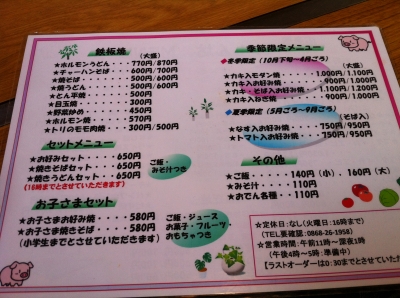 鉄板焼 (大盛)
★ホルモンうどん・・・770円/870円
★チャーハンそば・・・600円/700円
★焼そば・・・500円/600円
★焼うどん・・・500円/600円
★とん平焼・・・500円
★目玉焼・・・300円
★野菜炒め・・・450円
★ホルモン焼・・・570円
★トリのモモ肉焼・・・300円/500円
セットメニュー
★お好みセット・・・650円
★焼きそばセット・・・650円
★焼きうどんセット・・650円
(16時までとさせていただきます)
ご飯・
みそ汁つき
お子さまセット
★お子さまお好み焼・・・580円
★お子さま焼きそば・・・580円
(小学生までとさせていただきます)
ご飯・ジュース
お菓子・フルーツ・
おもちゃつき
季節限定メニュー
◆冬季限定(10月下旬~4月ごろ)
(大盛)
★カキ入モダン焼・・・1,000円/1,100円
★カキ入お好み焼・・・900円/1,000円
★カキ入ねぎ焼・・・900円
◆夏季限定(5月ごろ~9月ごろ)
(そば入)
★なす入お好み焼・・・750円/950円
★トマト入お好み焼・・・750円/950円
その他
★ご飯・・・140円(小) 160円(大)
★みそ汁・・・110円
★おでん各種・・・110円
★定休日:なし(火曜日:16時まで)
(TEL要確認:0868-26-1958)
★営業時間:午前11時~深夜1時
(午後4時~5時:準備中)
【ラストオーダーは0:30までとさせていただ